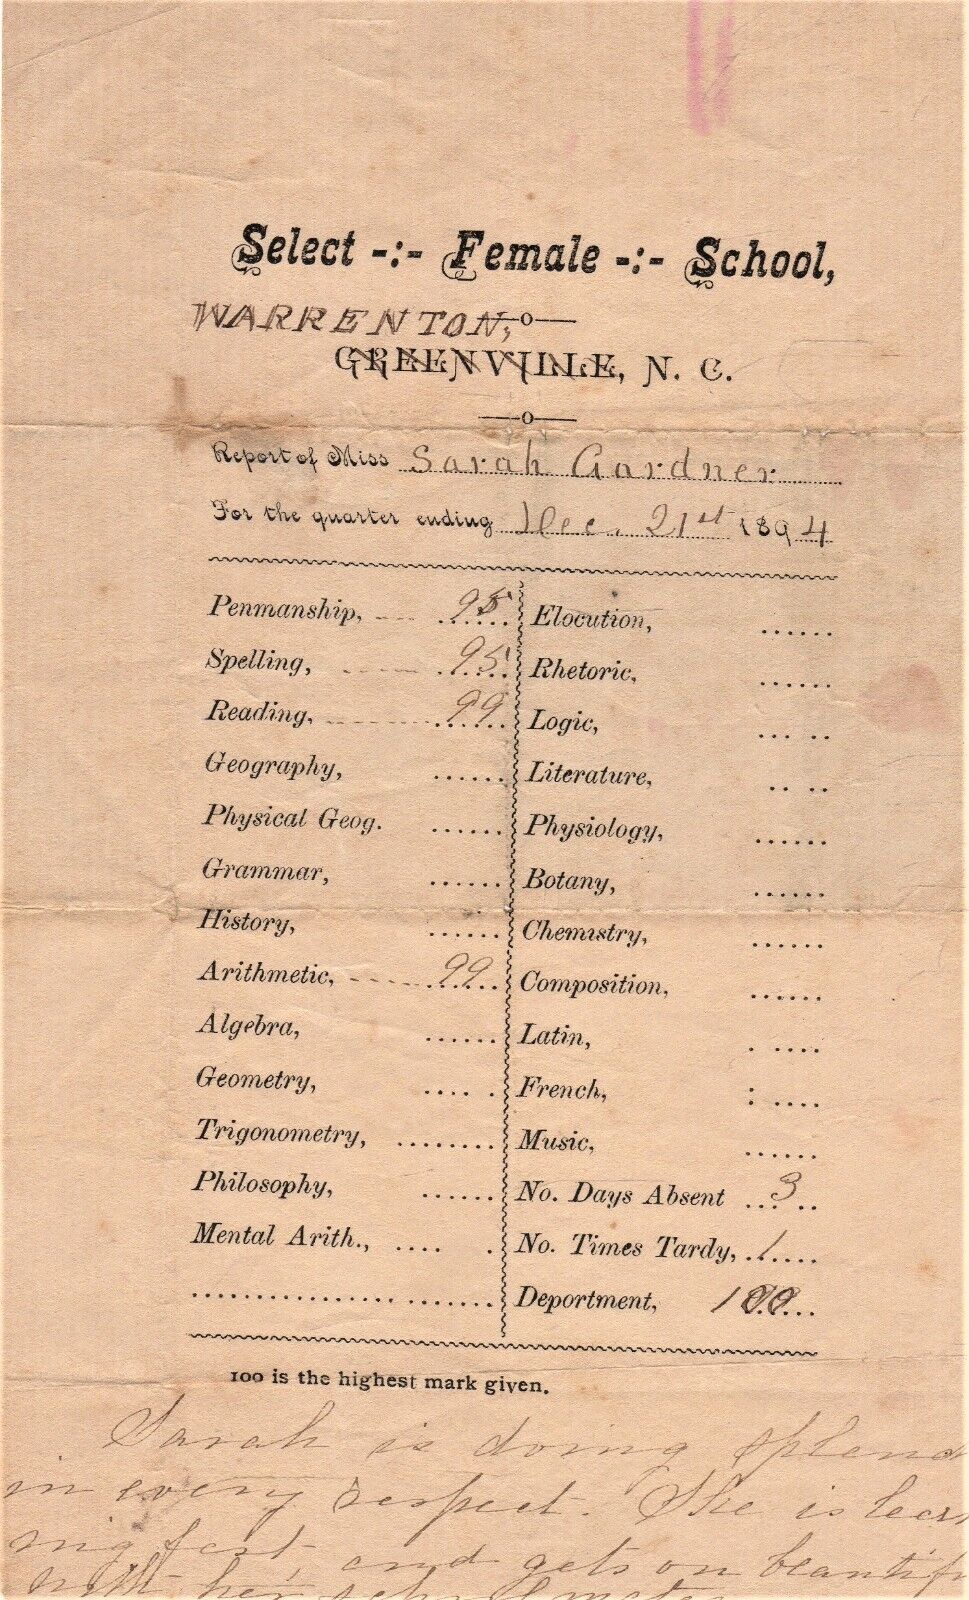 Select -:- Female -:- School,
WARRENTON,
GREENVILLE, N. C.
Report of Miss Sarah Gardner
For the quarter ending Dec. 21st 1894
Penmanship, 95
Spelling, 95
Reading, 99
Geography,
Physical Geog.
Grammar,
History,
Arithmetic, 99
Algebra,
Geometry,
Trigonometry,
Philosophy,
Mental Arith.,
Elocution,
Rhetoric,
Logic,
Literature,
Physiology,
Botany,
Chemistry,
Composition,
Latin,
French,
Music,
No. Days Absent 3
No. Times Tardy, 1
Deportment, 100
100 is the highest mark given.
Sarah is doing splend
in every respect. She is lear
ning fast, and gets on beautif
with her schoolmates